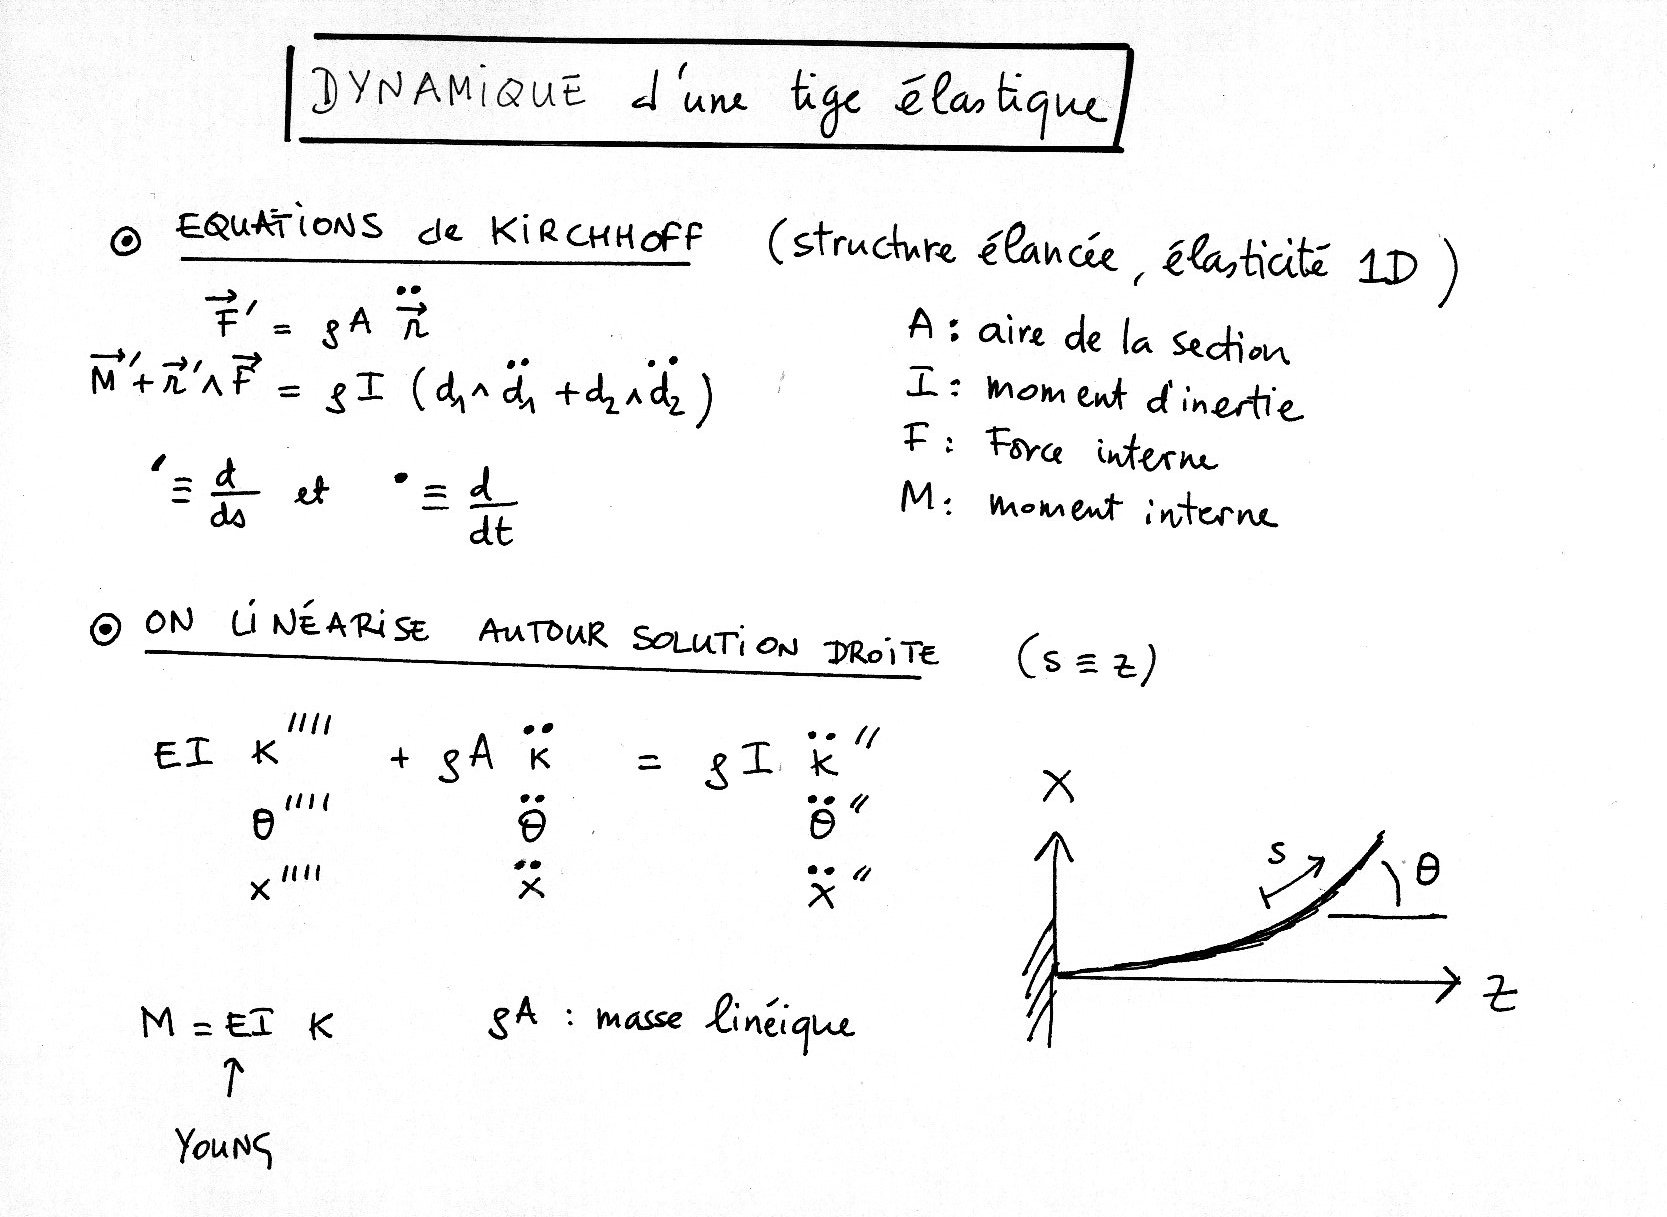 DYNAMiQUE d'une tige élastique
EQUATiONS de KiRCHHOFF (structure élancée, élasticité 1D)
F⃗' = ρA r⃗̈
M⃗' + r⃗' ∧ F⃗ = ρI (d₁ ∧ d̈₁ + d₂ ∧ d̈₂)
' ≡ d/ds et • ≡ d/dt
A : aire de la section
I : moment d'inertie
F : Force interne
M : moment interne
ON LiNÉARiSE AUTOUR SOLUTiON DROiTE (s ≡ z)
EI K'''' + ρA K̈ = ρI K̈''
θ'''' θ̈ θ̈''
x'''' ẍ ẍ''
X
s
θ
z
M = EI K
↑
YOUNG
ρA : masse linéique